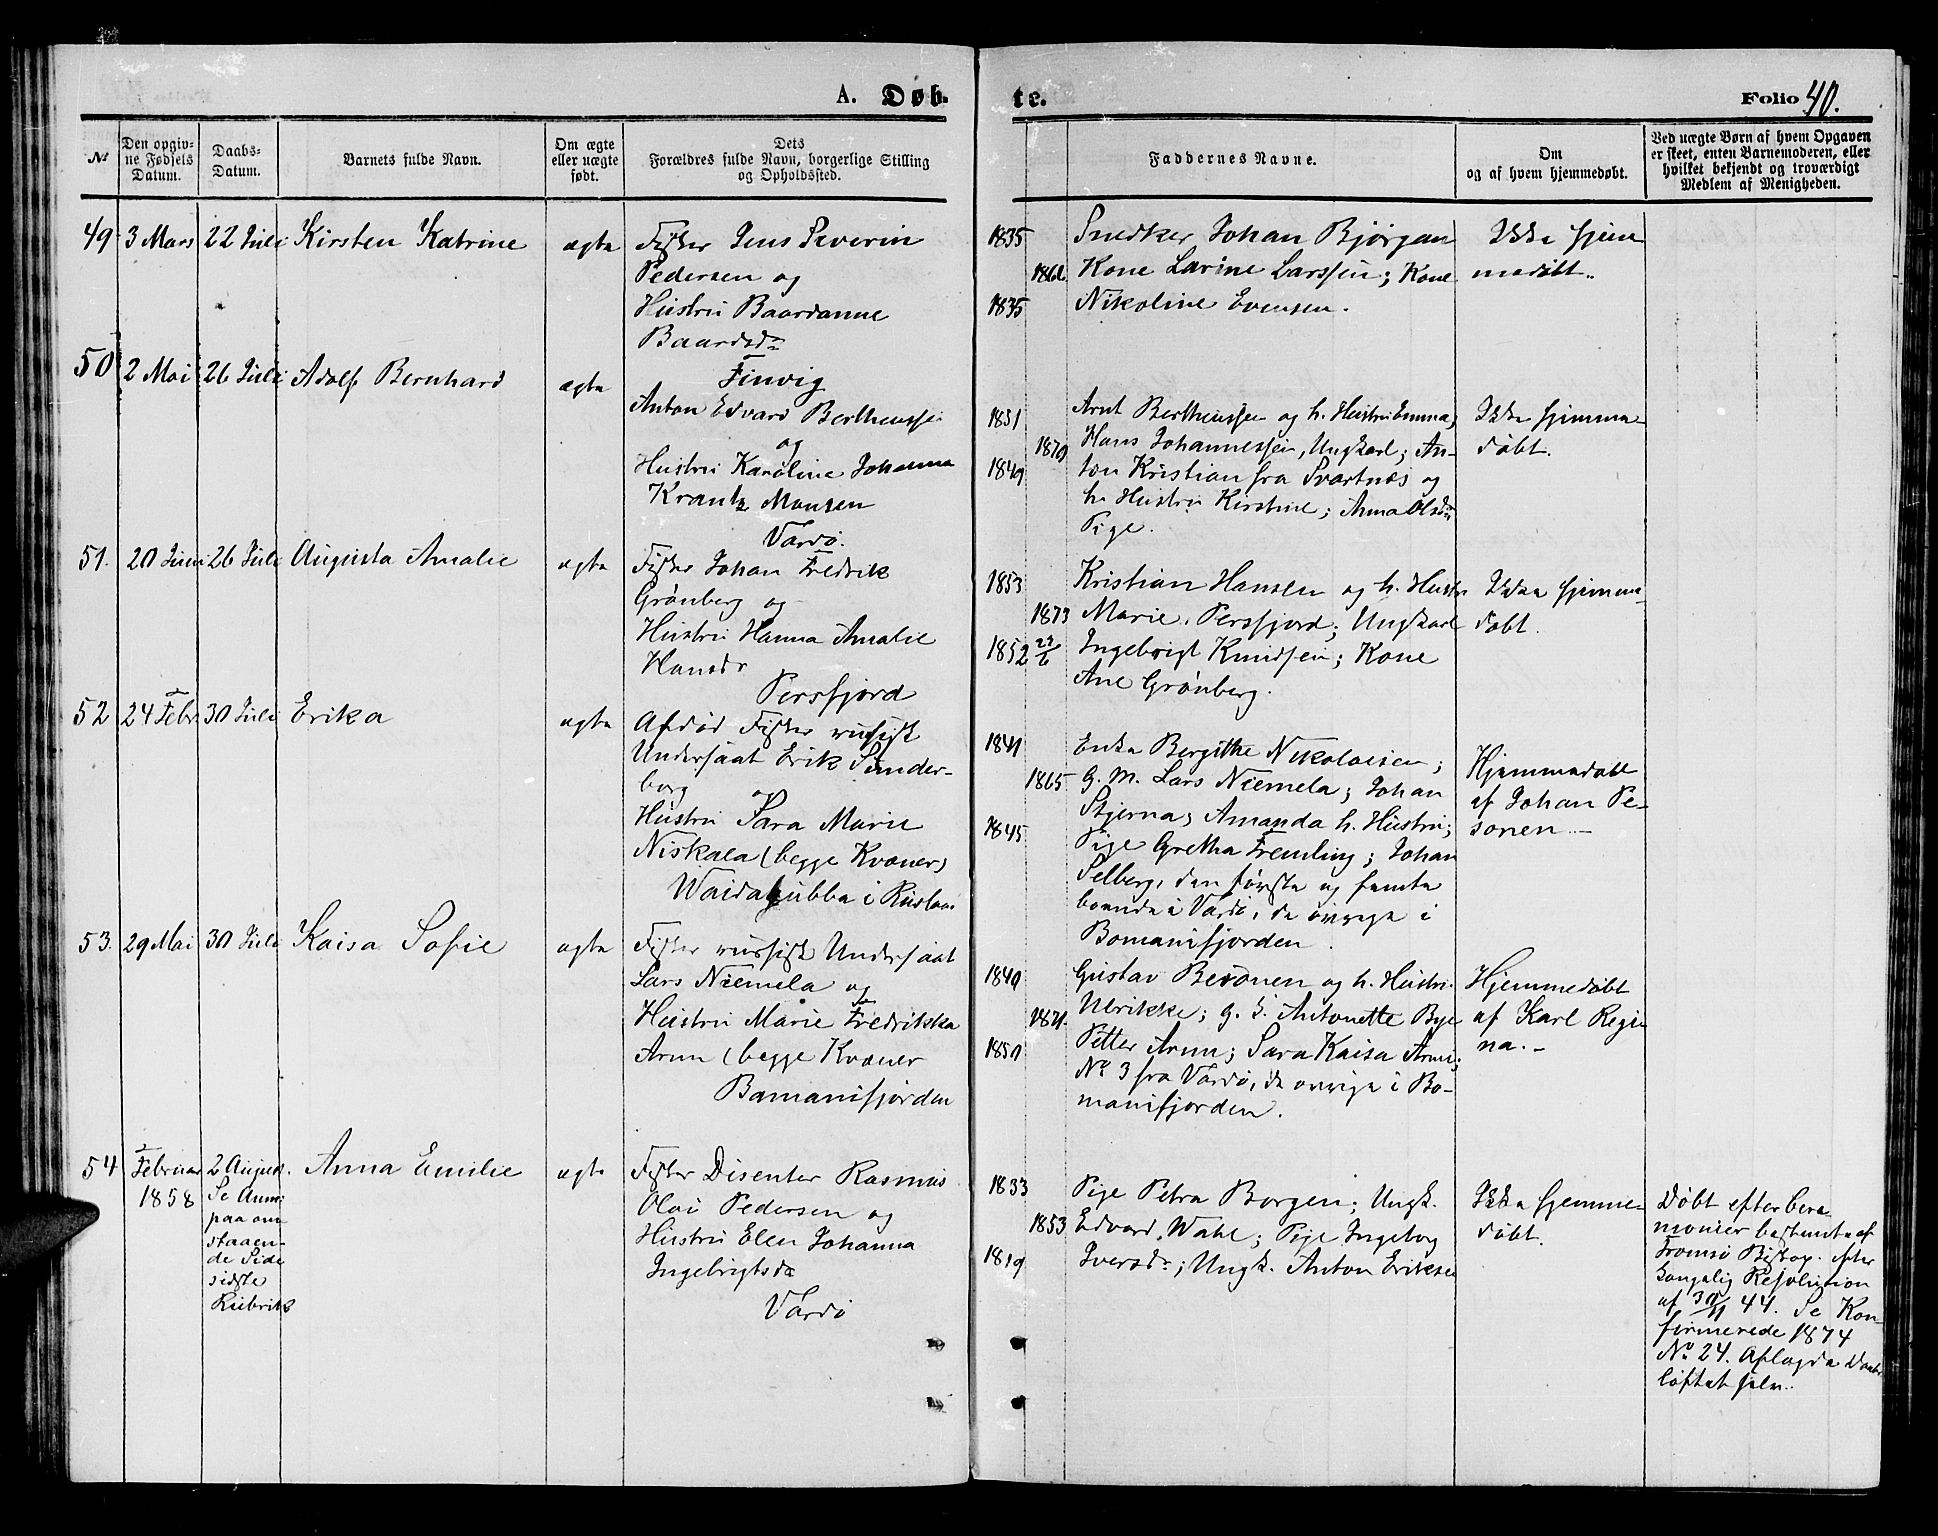 A. Døb-
te.
Folio 40.
№
Den opgiv-
ne Fødsels
Datum.
Daabs-
Datum.
Barnets fulde Navn.
Om ægte
eller uægte
født.
Dets
Forældres fulde Navn, borgerlige Stilling
og Opholdssted.
Faddernes Navne.
Om
og af hvem hjemmedøbt.
Ved uægte Børn af hvem Opgaven
er skeet, enten Barnemoderen, eller
hvilket bekjendt og troværdigt
Medlem af Menigheden.
49 3 Mars 22 Juli Kirsten Katrine ægte
Fisker Jens Severin
Pedersen og
Hustru Baardanne
Baardsdr
Finvig
1835
1835
Snedker Johan Bjørgan
Kone Larine Larssen; Kone
Nikoline Evensen.
Ikke hjem
medøbt.
50 2 Mai 26 Juli Adolf Bernhard ægte
Anton Edvard Bertheussen
og
Hustru Karoline Johanna
Krantz Monsen
Vardø.
1851
1870
1849
Arnt Bertheussen og h. Hustru Emma;
Hans Johannessen, Ungkarl; An-
ton Kristian fra Svartnæs og
h. Hustru Kirstine; Anna Olsdr
Pige.
Ikke hjemme
døbt.
51. 20 Juni 26 Juli Augusta Amalie ægte
Fisker Johan Fredrik
Grønberg og
Hustru Hanna Amalie
Hansdr
Persfjord
1853
1873
1852
Kristian Hansen og h. Hustru
Marie, Persfjord; Ungkarl
Ingebrigt Knudsen; Kone
Ane Grønberg.
Ikke hjemme-
døbt.
52 24 Febr 30 Juli Erika ægte
Afdød Fisker russisk
Undersaat Erik Sunder-
borg og
Hustru Sara Marie
Niskala (begge Kvæner)
Waidagubba i Rusland
1841
1865
1845
Enke Bergithe Nikolaisen;
G. M. Lars Niemela; Johan
Stjerna; Amanda h. Hustru;
Pige Gretha Fremling; Johan
Selberg, den første og femte
boende i Vardø, de øvrige i
Bomanifjorden.
Hjemmedøbt
af Johan Pe-
sonen.—
53. 29 Mai 30 Juli Kaisa Sofie ægte
Fisker russisk Undersaat
Lars Niemela og
Hustru Marie Fredrikka
Arnn (begge Kvæner
Bomanifjorden
1840
1871.
1850
Gustav Beronen og h. Hustru
Ulrikke; g. Antonette Bye
Petter Arnn; Sara Kaisa Arnn;
No 3 fra Vardø, de øvrige i Bo-
manifjorden.
Hjemmedøbt
af Karl Regi
na.—
54 Februar
1858
2 August.
Se Anm:
paa om
staaen-
de Side
sidste
Rubrik
Anna Emilie ægte
Fisker Disenter Rasmus
Olai Pedersen og
Hustru Elen Johanna
Ingebrigtsdr
Vardø
1833
1853
1819
Pige Petra Borgen; Ungk.
Edvard Wahl; Pige Ingeborg
Iversdr; Ungk. Anton Eriksen
Ikke hjemme-
døbt.
Døbt efter Cere
monier bestemte af
Tromsø Biskop efter
Kongelig Resolution
af 30/11 44. Se Kon-
firmerede 1874
No 24. Aflagde Daabs
løftet selv.